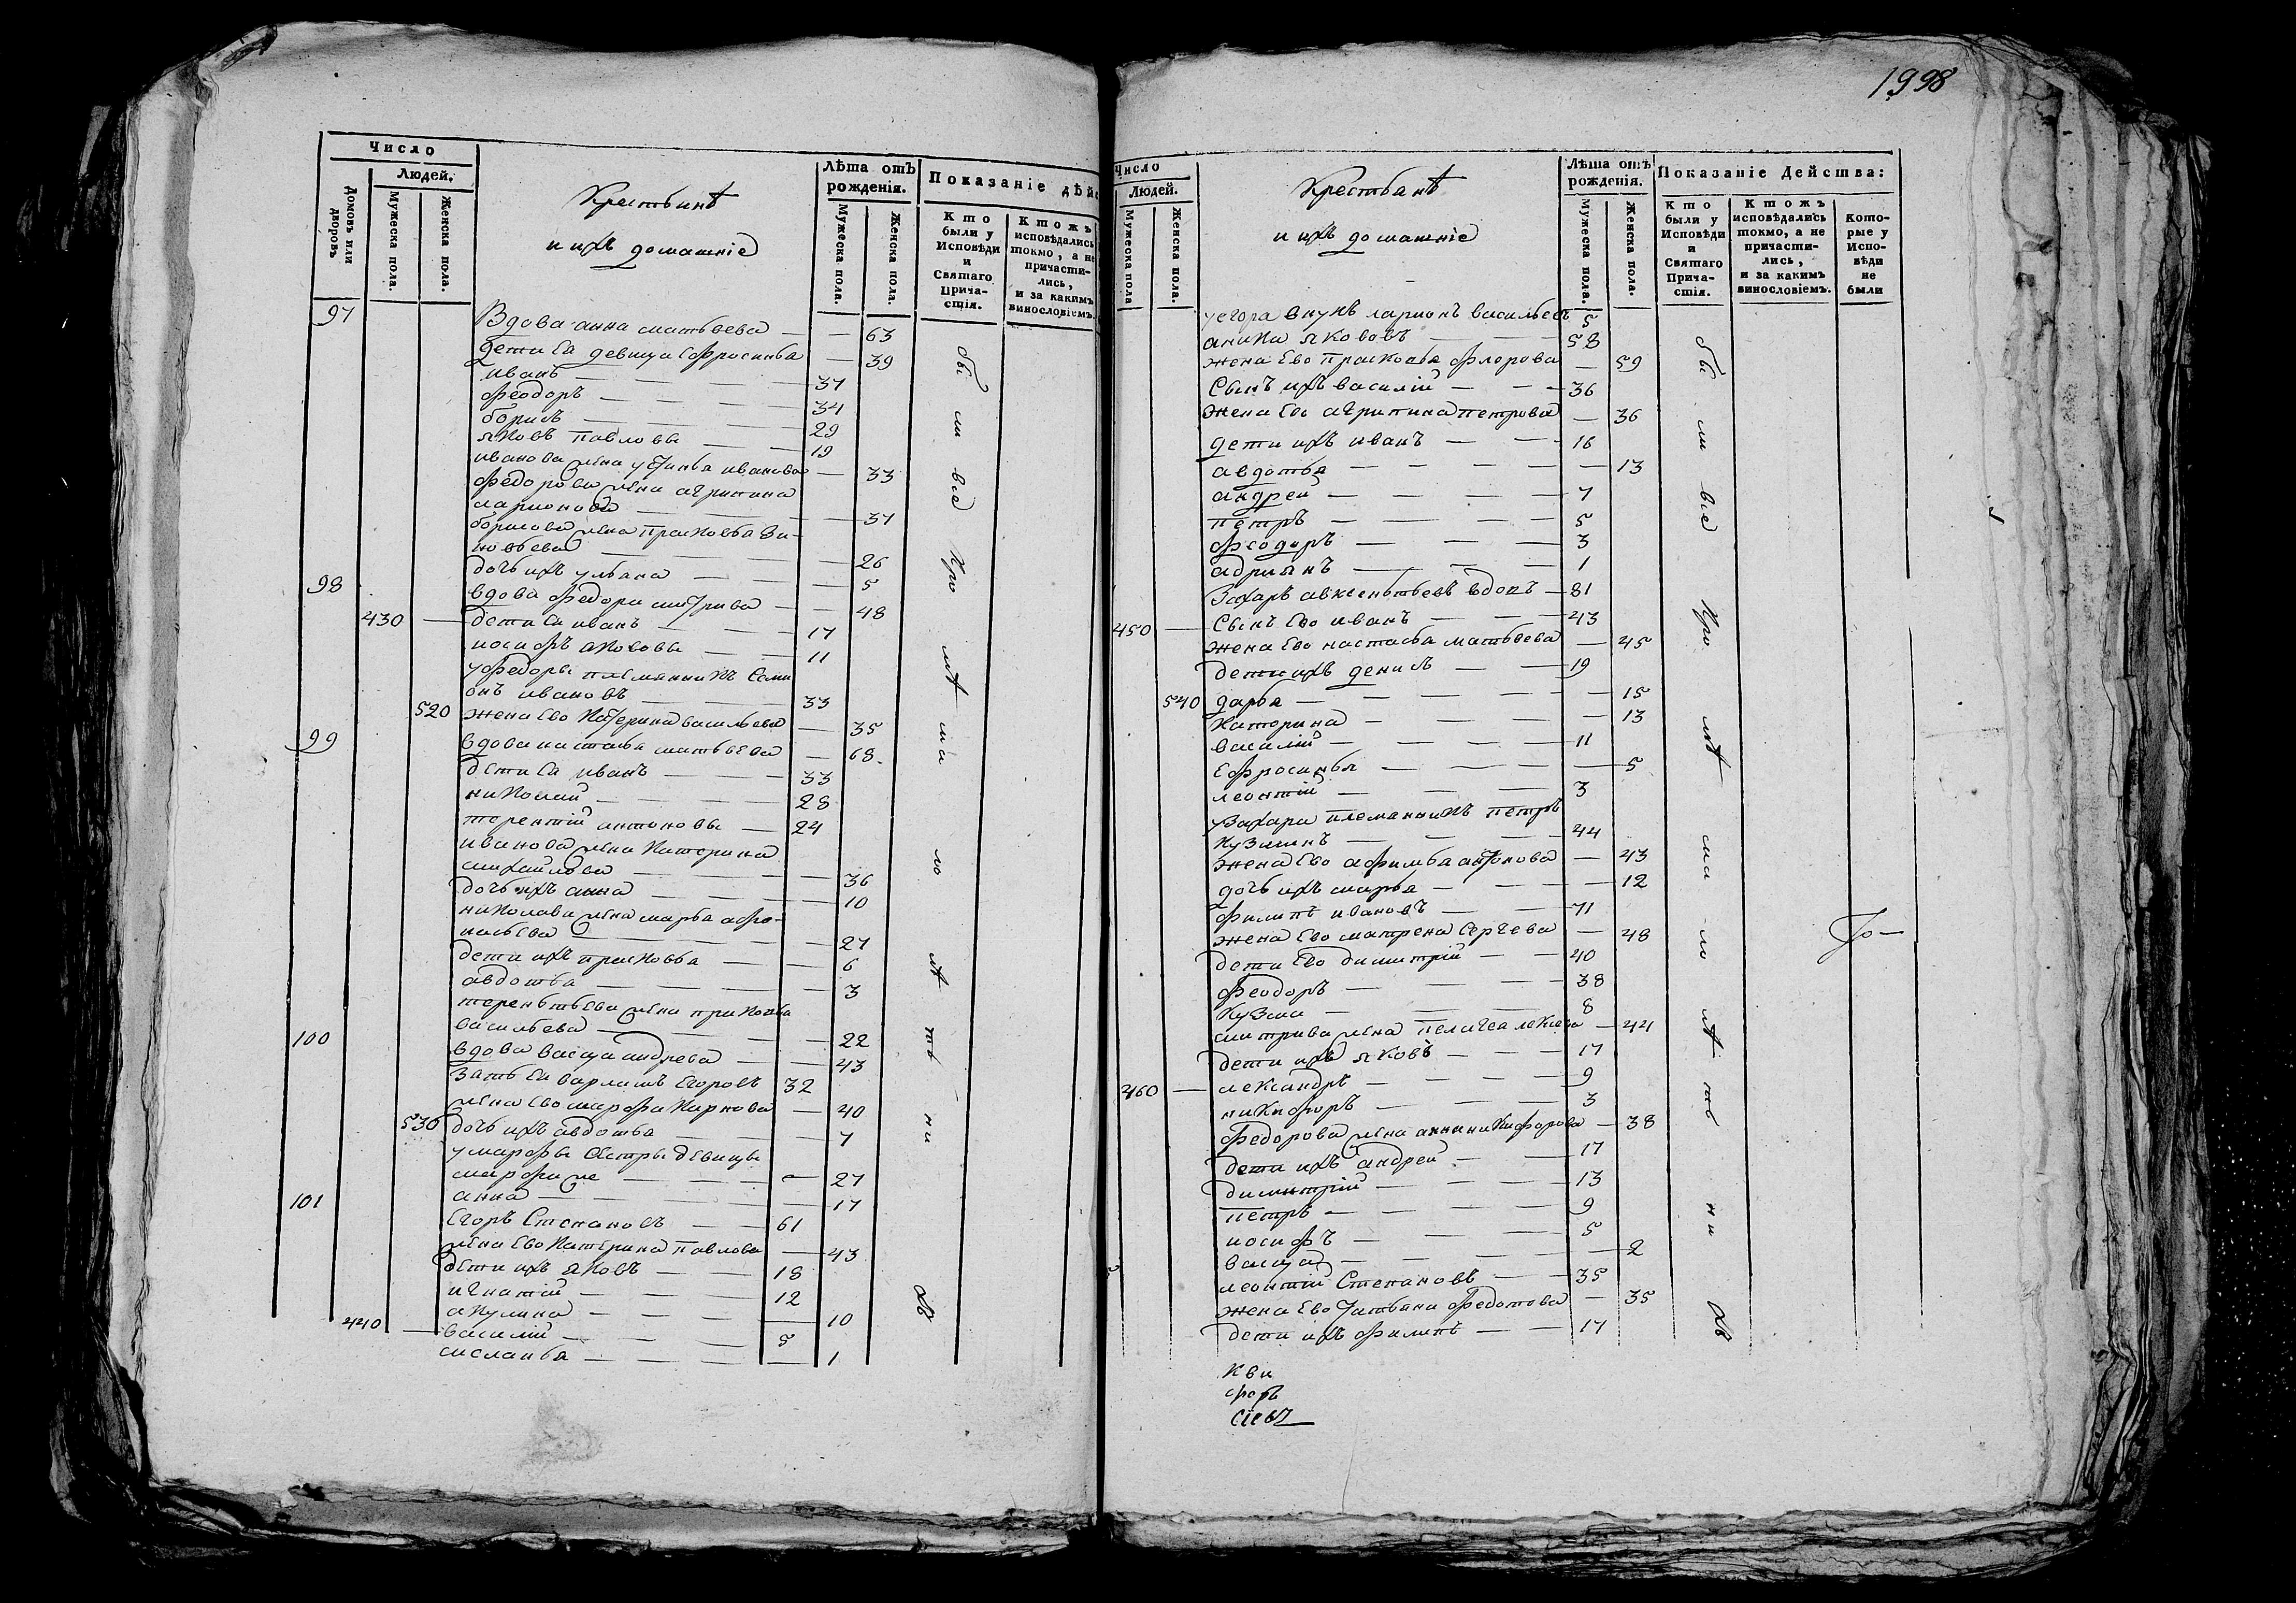 1998
Число
Людей.
Домовъ или дворовъ
Мужеска пола.
Женска пола.
Крестьянѣ
и ихъ домашнiе
Лѣта отъ рожденiя.
Мужеска пола.
Женска пола.
Показанiе дѣйс
Кто были у Исповѣди и Святаго Прича-стiя.
Ктожъ исповѣдались токмо, а не причасти-лись, и за какимъ винословiемъ.
97 Вдова анна матвеева — 63
дети Ея девица Ефросинья — 39
иванъ — 37
феодоръ — 34
борисъ — 29
яковъ павловы — 19
иванова жена устинья иванова — 33
федорова жена агрипина
ларионова — 37
борисова жена прасковья зи-
новьева — 26
дочь ихъ ульяна — 5
98 вдова федора митрива — 48
430 — дети Ея иванъ — 17
иосифъ яковлевы — 11
у федоры племянникъ Семи
онъ ивановъ — 33
520 жена Ево катерина васильева — 35
99 вдова настасья матвеева — 68
дети Ея иванъ — 33
николай — 28
терентiй антоновы — 24
иванова жена катерина
михайлова — 36
дочь ихъ анна — 10
николаева жена марья афо-
насьева — 27
дети ихъ прасковья — 6
авдотья — 3
терентьева жена прасковья
васильева — 22
100 вдова васса андреева — 43
зять Ея варламъ Егоровъ 32
жена Ево марфа карпова — 40
530 дочь ихъ авдотья — 7
у марфы сестры девицы
марфа же — 27
анна — 17
101 Егоръ Степановъ — 61
жена Ево катерина павлова — 43
дети ихъ яковъ — 18
игнатiй — 12
акулина — 10
440 — василiй — 5
маланья — 1
бы ли все
Число
Людей.
Мужеска пола
Женска пола.
Крестьянѣ
и ихъ домашнiе
Лѣта отъ рожденiя.
Мужеска пола.
Женска пола.
Показанiе Действа:
Кто были у Исповѣди и Святаго Прича-стiя.
Ктожъ исповѣдались токмо, а не причасти-лись, и за какимъ винословiемъ.
Кото-рые у Испо-вѣди не были
у егора внукъ ларионъ васильевъ 5
аника яковлевъ — 58
жена Ево прасковья флорова — 59
Сынъ ихъ василiй — 36
жена Ево агрипина петрова — 36
дети ихъ иванъ — 16
авдотья — 13
андрей — 7
петръ — 5
феодоръ — 3
адриянъ — 1
Захаръ авксентьевъ вдовъ — 81
450 — Сынъ Ево иванъ — 43
жена Ево настасья матвеева — 45
дети ихъ денисъ — 19
540 дарья — 15
катерина — 13
василiй — 11
Ефросинья — 5
леонтiй — 3
у Захара племянникъ петръ
кузминъ — 44
жена Ево афимья антонова — 43
дочь ихъ марья — 12
филипъ ивановъ — 71
жена Ево матрена Сергеева — 48
дети Ево димитрiй — 40
феодоръ — 38
кузма — 8
митрива жена пелагеа лексева — 44
дети ихъ яковъ — 17
460 — александръ — 9
никифоръ — 3
федорова жена анна никифорова — 38
дети ихъ андрей — 17
димитрiй — 13
петръ — 9
иосифъ — 5
васса — 2
леонтiй Степановъ — 35
жена Ево татьяна федотова — 35
дети ихъ филипъ — 17
бы ли все